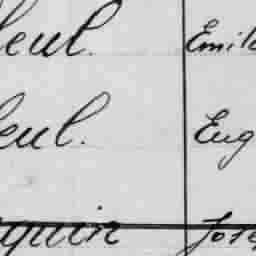 eul. Emil
eul. Eug
quin Jose